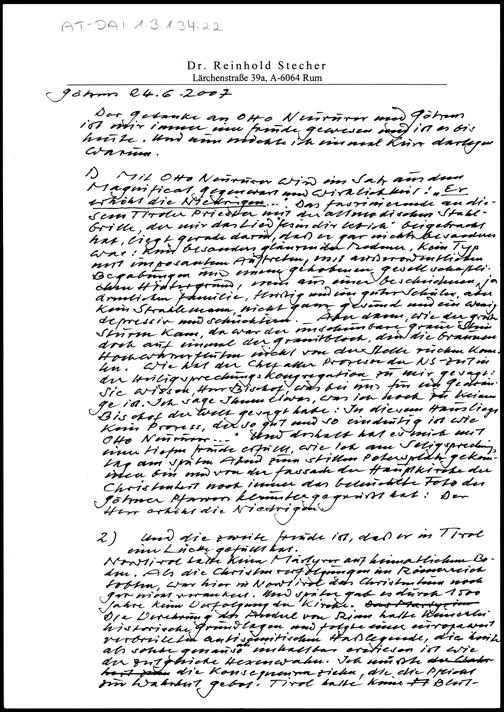 AT-DAI 1.3.1.34.22
Dr. Reinhold Stecher
Lärchenstraße 39a, A-6064 Rum
Götzens 24.6.2007
Der Gedanke an Otto Neururer und Götzens
ist mir immer eine Freude gewesen und ist es bis
heute. Und nun möchte ich einmal kurz darlegen
warum.
1) Mit Otto Neururer wird ein Satz aus dem
Magnificat Gegenwart und Wirklichkeit: "Er
erhöht die Niedrigen..." Das Faszinierende an die-
sem Tiroler Priester mit der altmodischen Stahl-
brille, der mir das Lied beigebracht
hat, liegt gerade darin, daß er gar nichts Besonderes
war: Kein besonders glänzender Redner, kein Typ
mit imposantem Auftreten, mit außerordentlichen
Begabungen und einem gehobenen gesellschaftli-
chen Hintergrund, nein aus einer bescheidenen, ja
ärmlichen Familie, fleißig und ein guter Schüler, aber
kein Strahlemann, nicht ganz gesund und ein wenig
depressiv und schüchtern. – Aber dann, wie der große
Sturm kam, da war der unscheinbare graue Stein
doch auf einmal der Granitblock, den die braunen
Hochwasserfluten nicht von der Stelle rücken konn-
ten. Wie hat der Chef aller Prozesse der NS-Zeit in
der Heiligsprechungskongregation zu mir gesagt:
Sie wissen Herr Bischof, was bei mir für ein Gedrän-
ge ist. Ich sage Ihnen etwas, was ich noch zu keinem
Bischof der Welt gesagt habe: In diesem Haus liegt
kein Prozess, der so gut und so eindeutig ist wie
Otto Neururer..." Und deshalb hat es mich mit
einer tiefen Freude erfüllt, wie ich am Seligsprechungs-
tag am späten Abend zum stillen Petersplatz gekom-
men bin und von der Fassade der Hauptkirche der
Christenheit noch immer das beleuchtete Foto des
Götzner Pfarrers heruntergegrüßt hat: Der
Herr erhöht die Niedrigen
2) Und die zweite Freude ist, daß er in Tirol
eine Lücke gefüllt hat.
Nordtirol hatte keine Märtyrer auf heimatlichem Bo-
den. Als die Christenverfolgungen im Römerreich
tobten, war hier in Nordtirol das Christentum noch
gar nicht verankert. Und später gab es durch 1500
Jahre keine Verfolgung der Kirche.
Die Verehrung des Anderle von Rinn hatte keinerlei
historische Grundlagen und folgte einer europaweit
verbreiteten antisemitischen Haßlegende, die heute
als solche genauso unhaltbar erwiesen ist wie
der Hexenwahn. Ich mußte
die Konsequenz ziehen, die die Pflicht
zur Wahrheit gebot. Tirol hatte keine Blut-